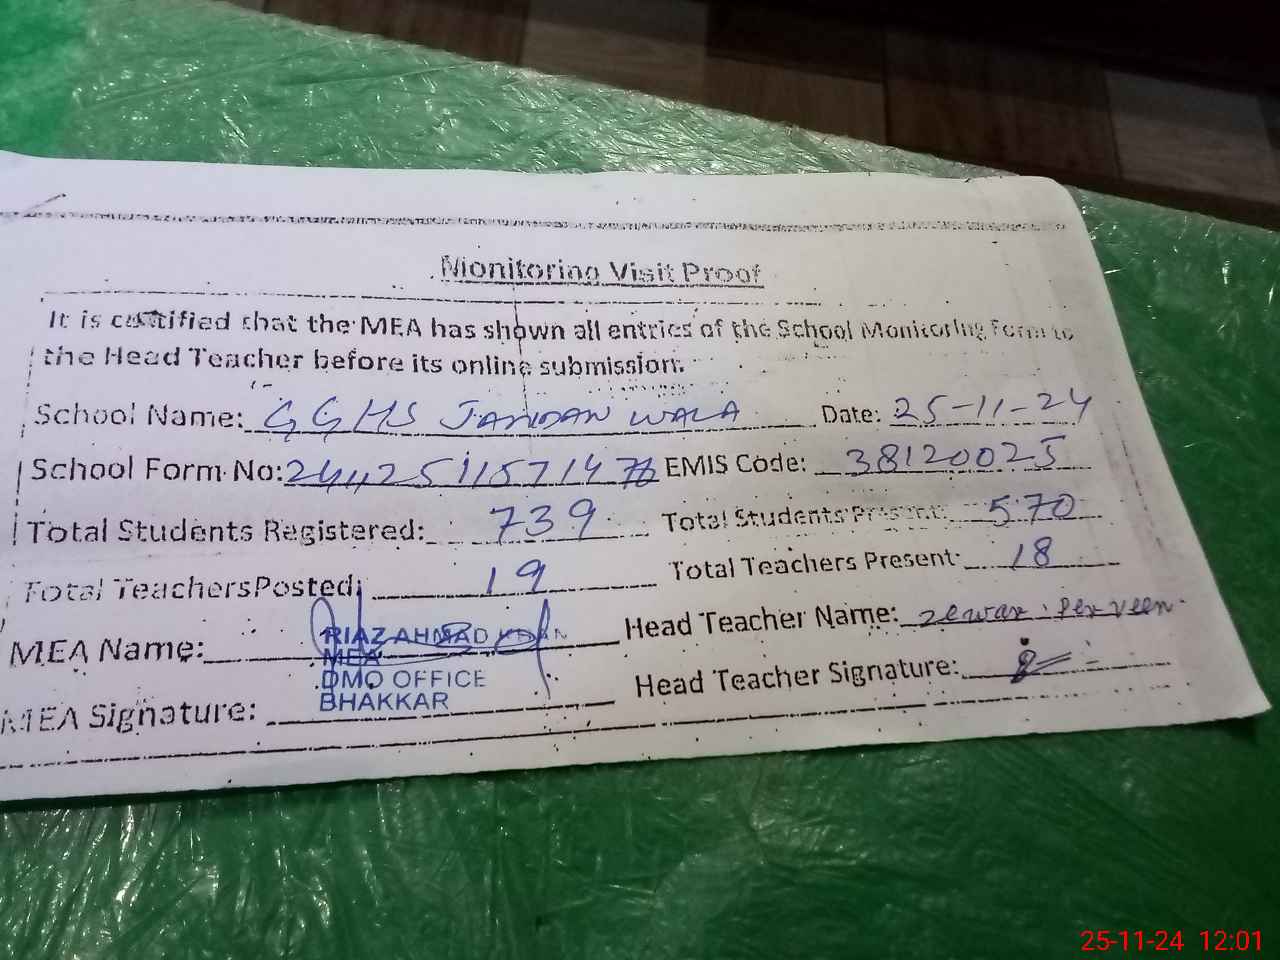 Monitoring Visit Proof
It is certified that the MEA has shown all entries of the School Monitoring Form to
the Head Teacher before its online submission.
School Name: GGHS JANDAN WALA Date: 25-11-24
School Form No: EMIS Code: 38120025
Total Students Registered: 739 Total Students Present: 570
Total Teachers Posted: 19 Total Teachers Present: 18
MEA Name: RIAZ AHMAD KHAN Head Teacher Name: Zewar Perveen
MEA
DMO OFFICE
BHAKKAR
MEA Signature: Head Teacher Signature:
25-11-24 12:01